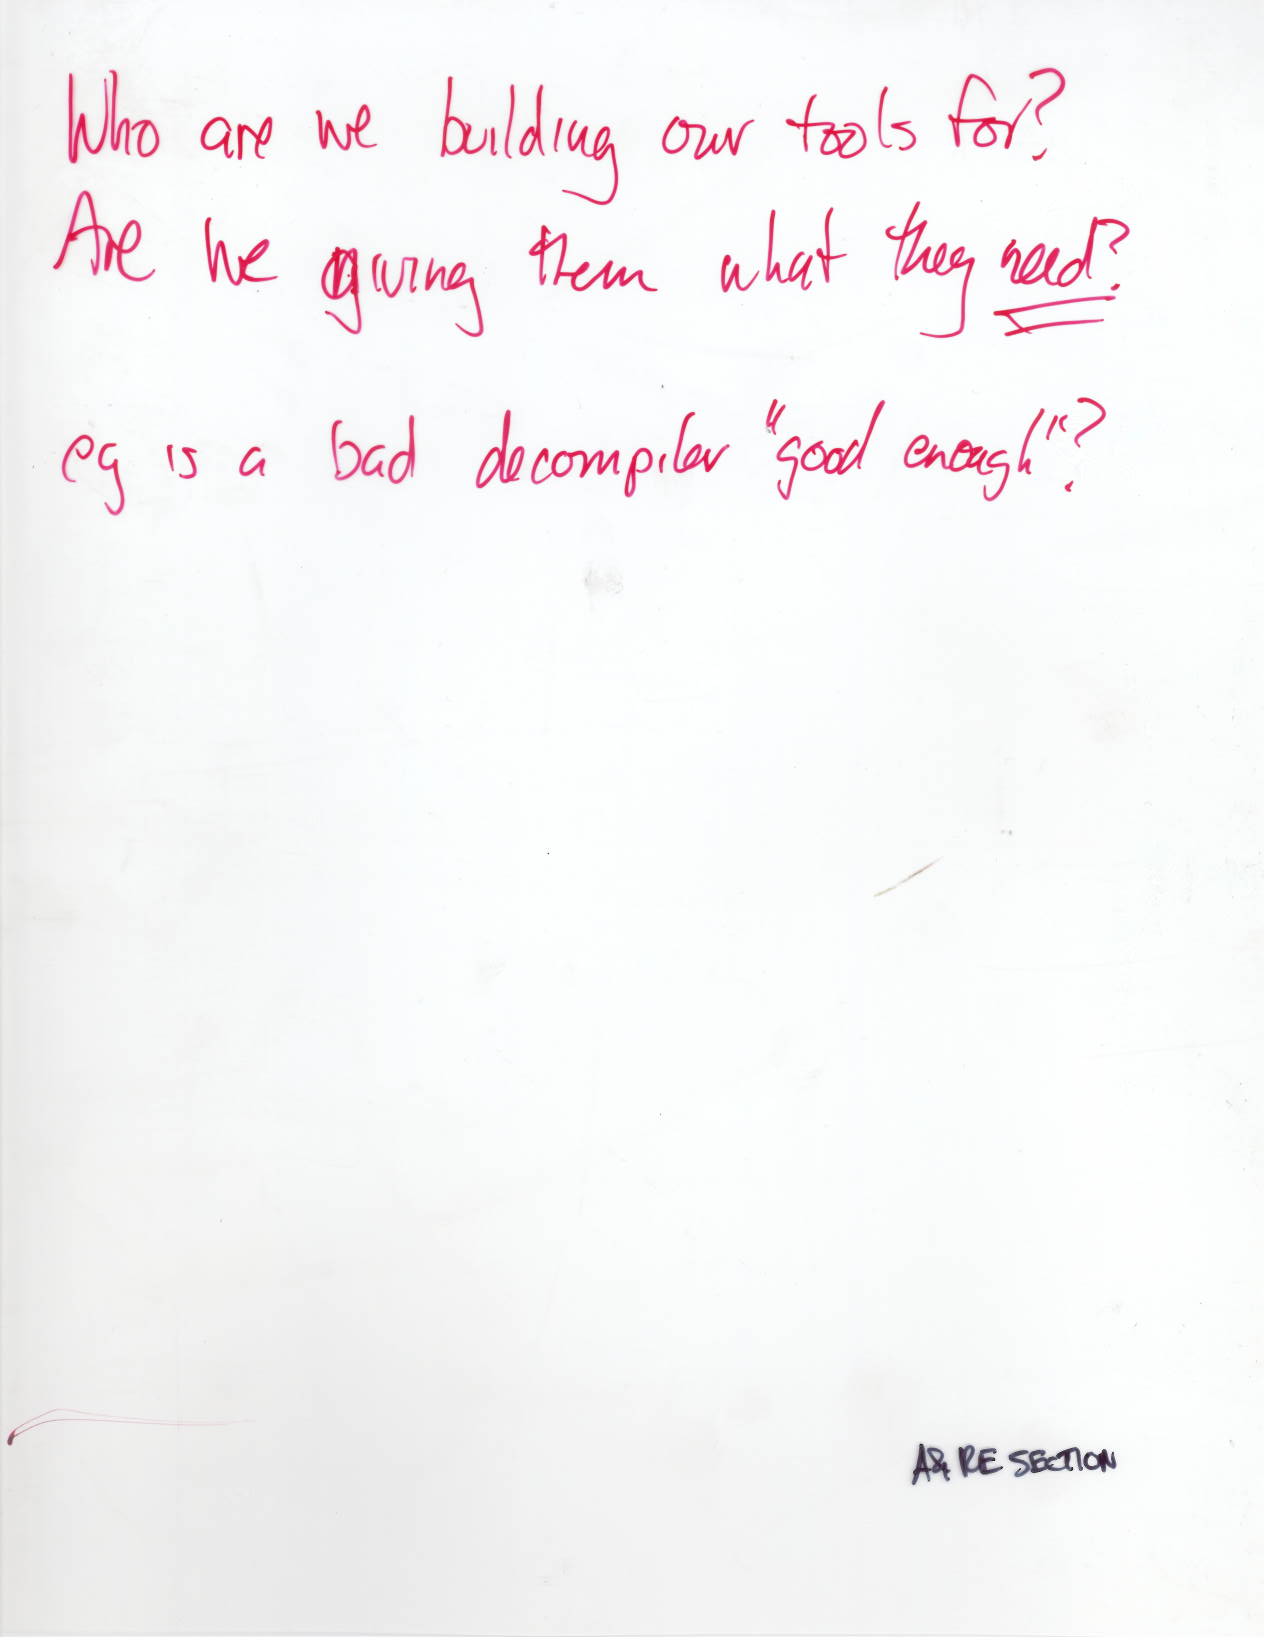 Who are we building our tools for?
Are we giving them what they need?
eg is a bad decompiler "good enough"?
A& RE SECTION